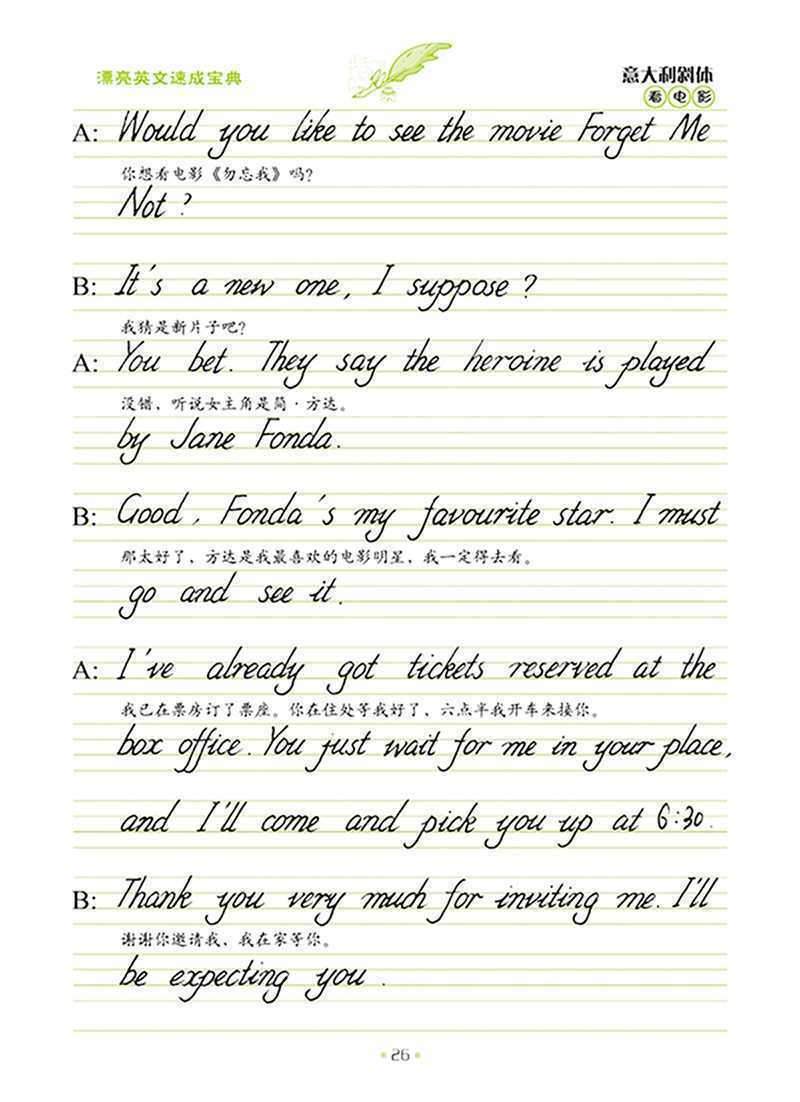 漂亮英文速成宝典
意大利斜体
看电影
A: Would you like to see the movie Forget Me
你想看电影《勿忘我》吗?
Not ?
B: It's a new one, I suppose ?
我猜是新片子吧?
A: You bet. They say the heroine is played
没错，听说女主角是简·方达。
by Jane Fonda.
B: Good, Fonda's my favourite star. I must
那太好了，方达是我最喜欢的电影明星，我一定得去看。
go and see it.
A: I've already got tickets reserved at the
我已在票房订了票座。你在住处等我好了，六点半我开车来接你。
box office. You just wait for me in your place,
and I'll come and pick you up at 6:30.
B: Thank you very much for inviting me. I'll
谢谢你邀请我，我在家等你。
be expecting you .
26